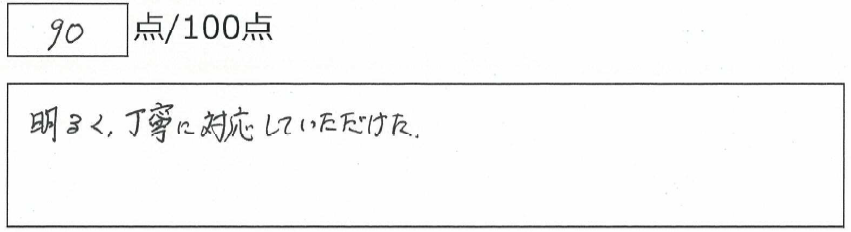 90 点/100点
明るく、丁寧に対応していただけた.